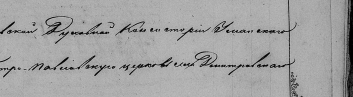 вской Духовной Консисторіи Уманскаго
тро-Павловскую церковь села Дмитровскаго